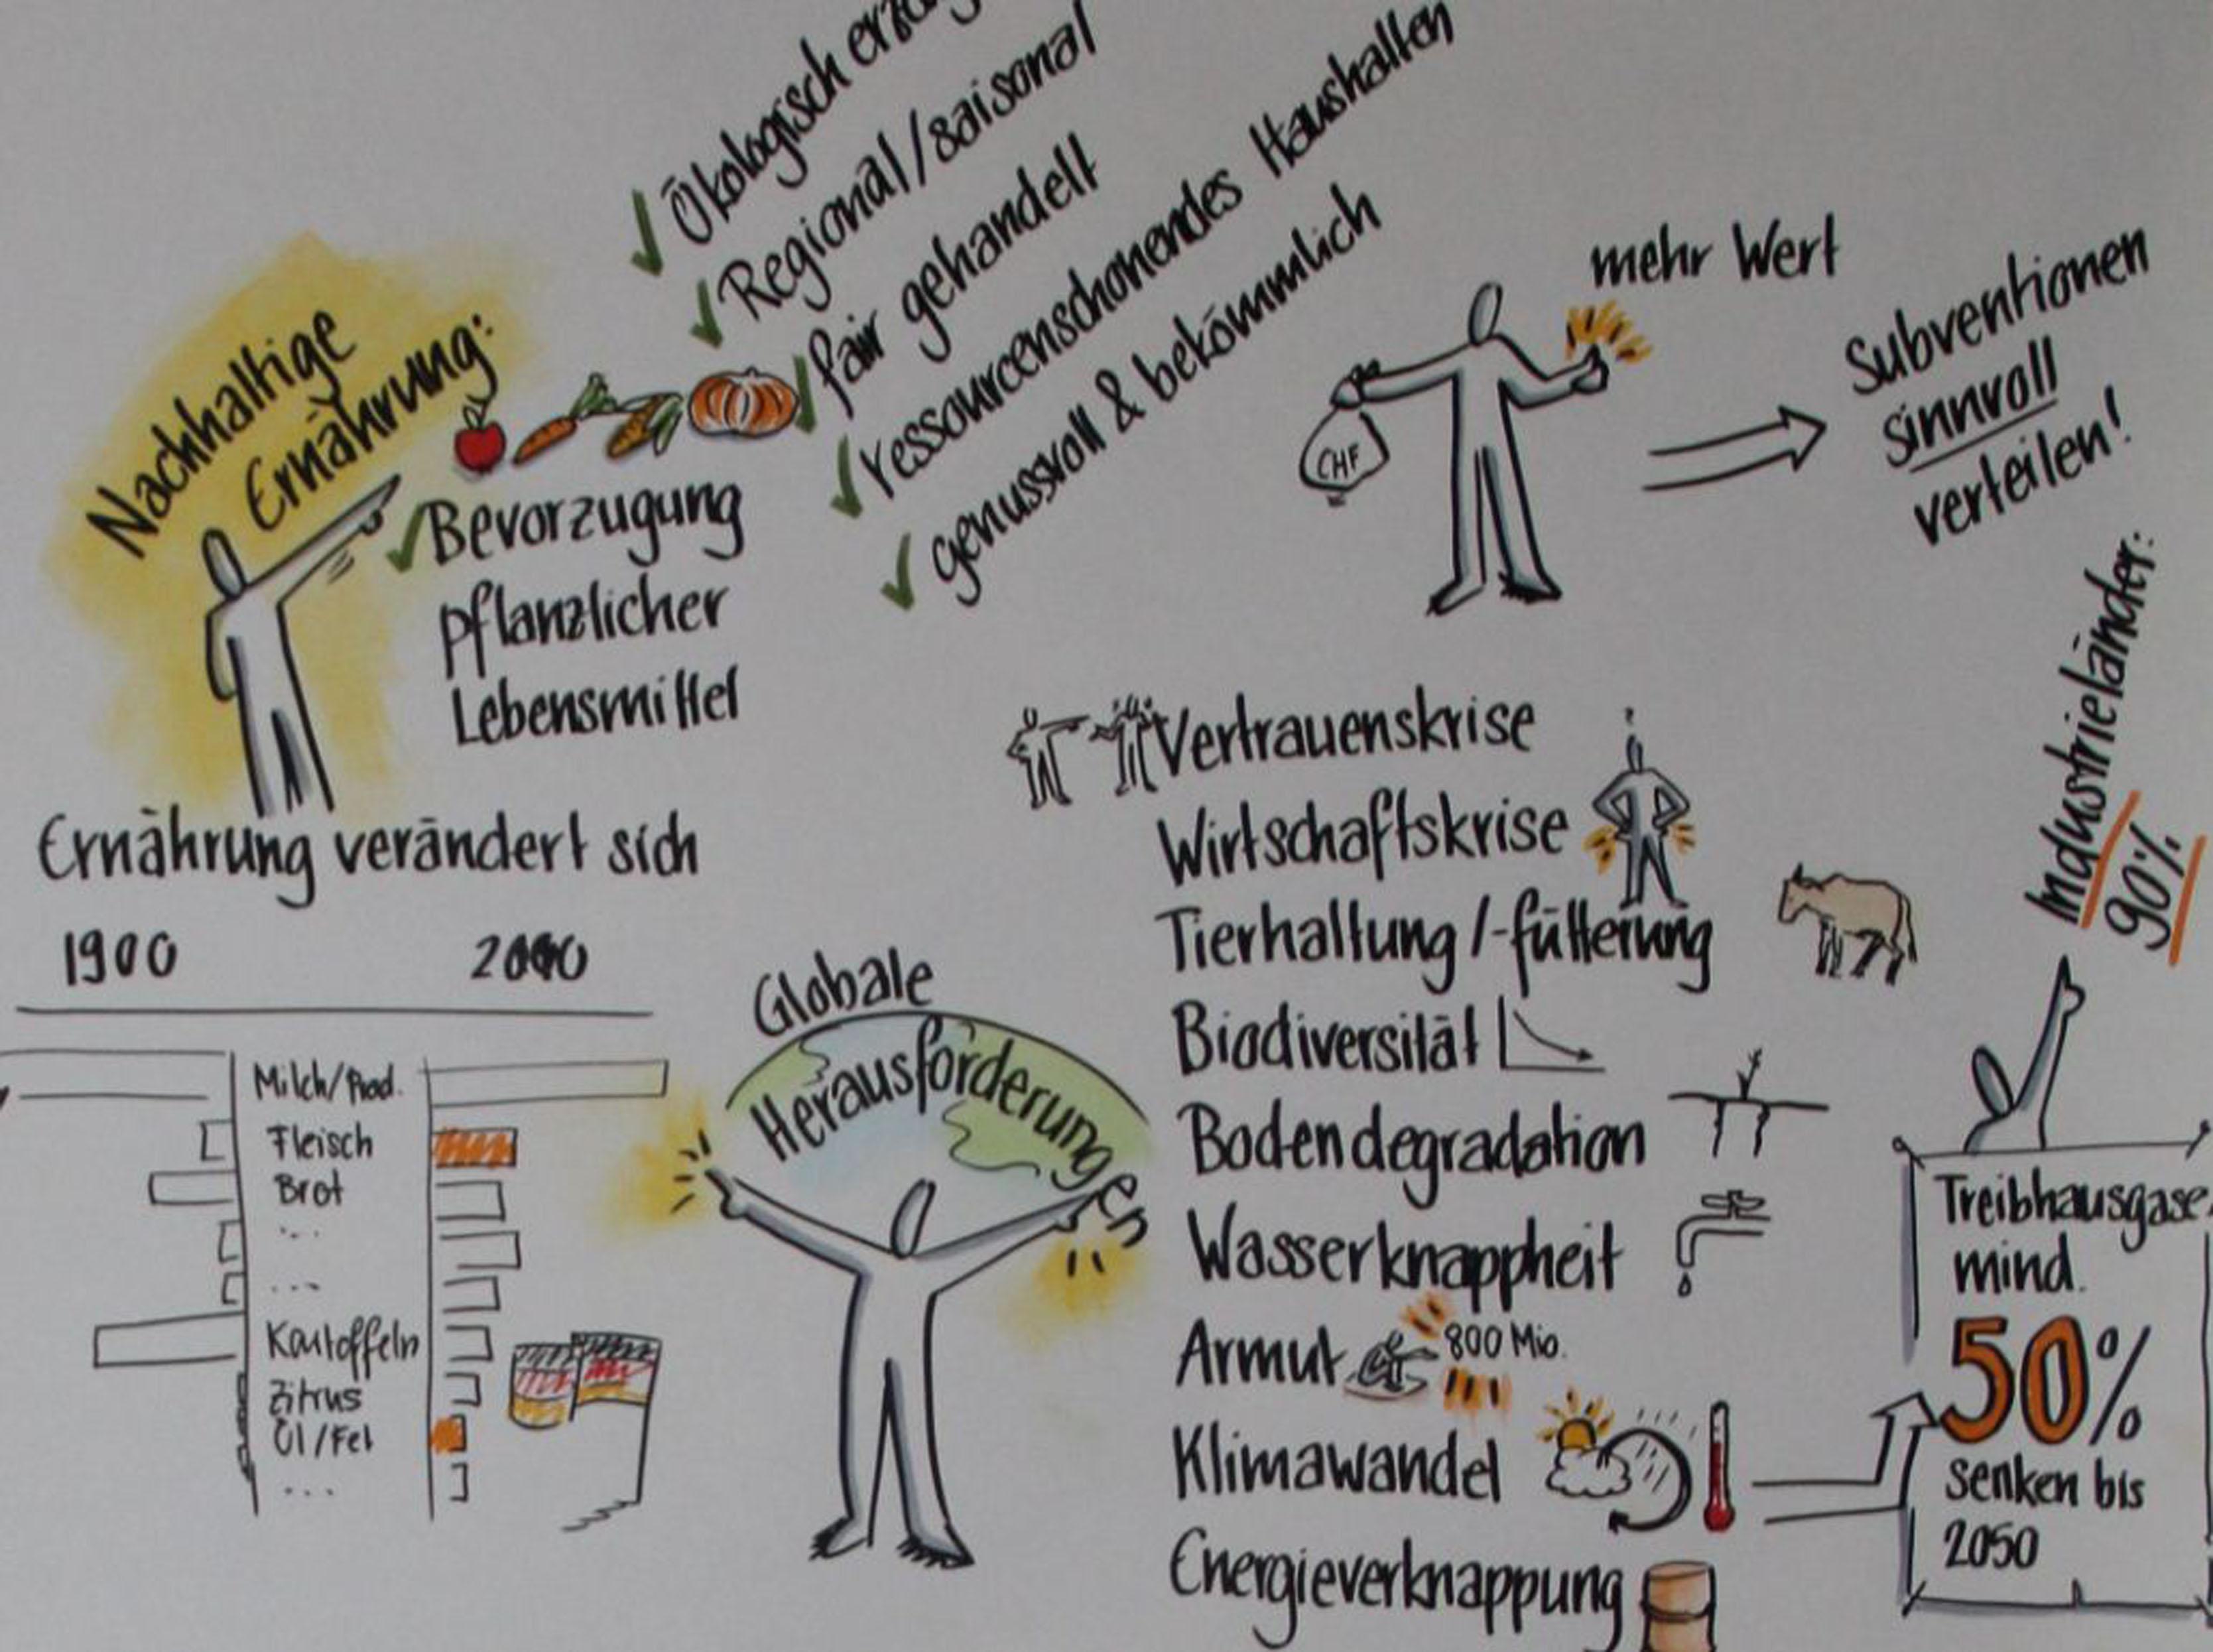 Nachhaltige
Ernährung:
Ökologisch
Regional/saisonal
fair gehandelt
ressourcenschonendes Haushalten
genussvoll & bekömmlich
Bevorzugung
pflanzlicher
Lebensmittel
mehr Wert
CHF
Subventionen
sinnvoll
verteilen!
Ernährung verändert sich
1900
Milch/Prod.
Fleisch
Brot
...
...
Kartoffeln
Zitrus
Öl/Fet
...
Globale
Herausforderungen
Vertrauenskrise
Wirtschaftskrise
Tierhaltung/-fütterung
Biodiversität
Bodendegradation
Wasserknappheit
Armut 800 Mio.
Klimawandel
Energieverknappung
Industrieländer:
90%
Treibhausgase
mind.
50%
senken bis
2050